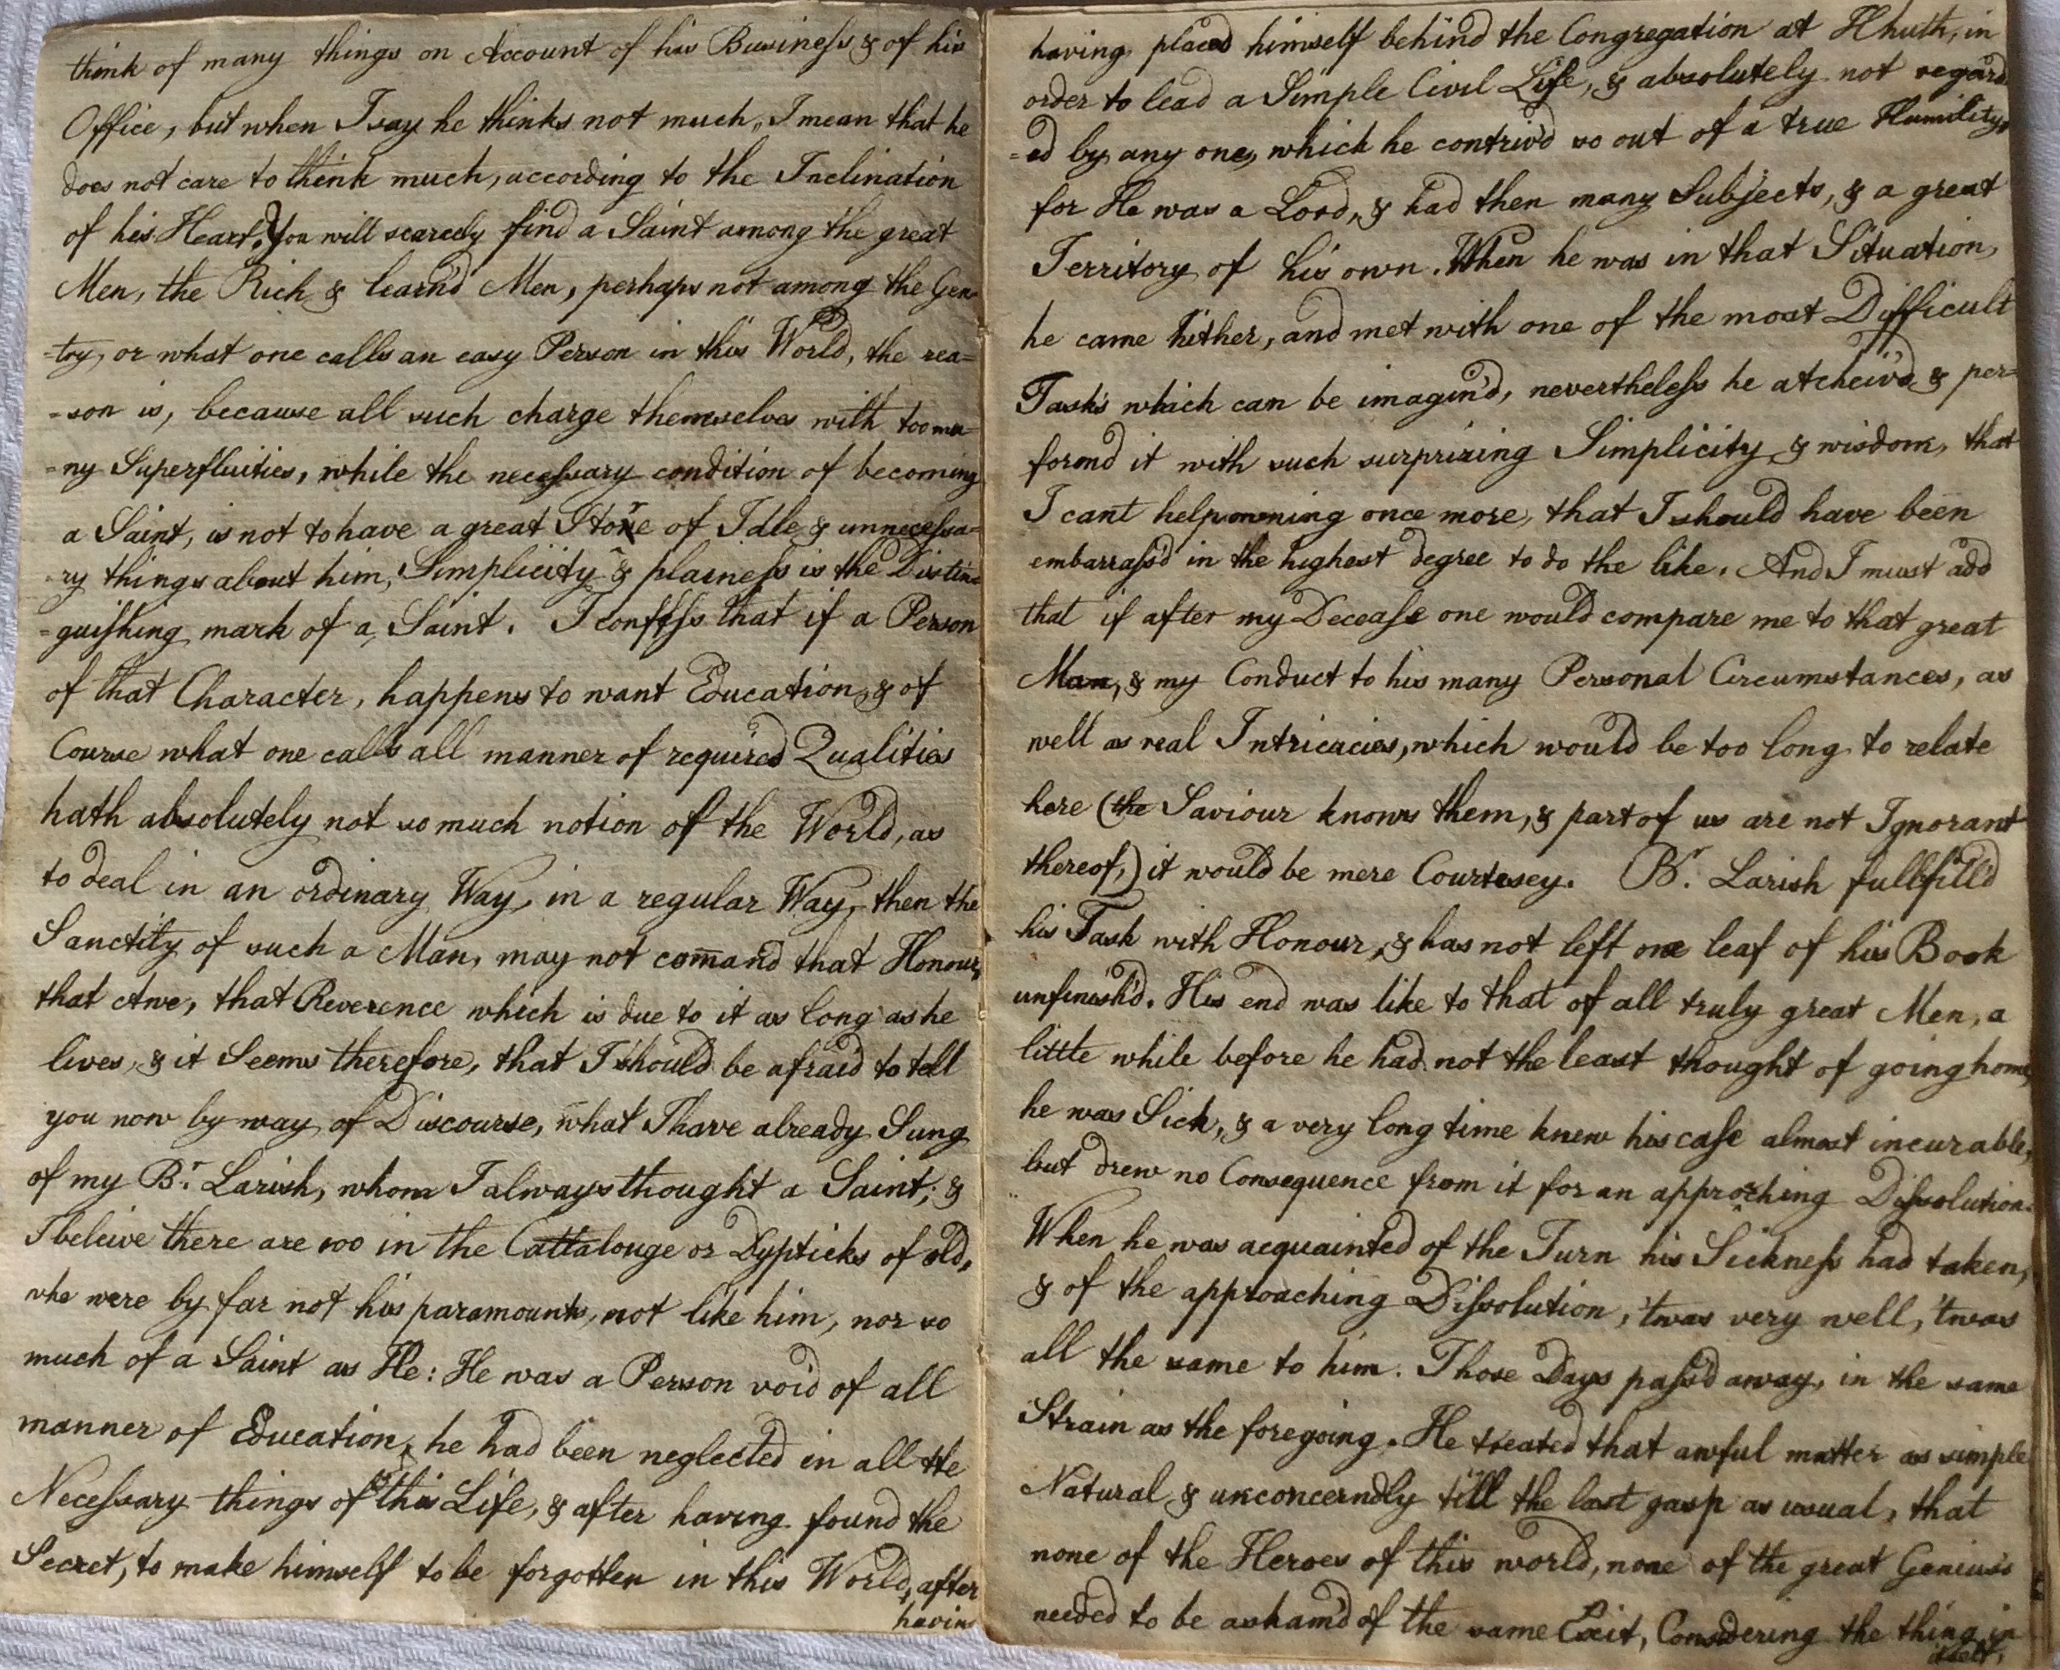 think of many things on Account of his Business & of his
Office, but when I say he thinks not much, I mean that he
does not care to think much, according to the Inclination
of his Heart. You will scarcely find a Saint among the great
Men, the Rich & learn'd Men, perhaps not among the Gen-
-try, or what one calls an easy Person in this World, the rea=
-son is, because all such charge themselves with too ma-
-ny Superfluities, while the necessary condition of becoming
a Saint, is not to have a great Store of Idle & unnecessa=
-ry things about him, Simplicity & plainess is the Distin=
=guishing mark of a Saint. I confess that if a Person
of that Character, happens to want Education, & of
Course what one calls all manner of required Qualities
hath absolutely not so much notion of the World, as
to deal in an ordinary Way, in a regular Way, then the
Sanctity of such a Man, may not comand that Honour,
that Awe, that Reverence which is due to it as long as he
lives, & it Seems therefore, that I should be afraid to tell
you now by way of Discourse, what I have already Sung
of my Br. Larish, whom I always thought a Saint; &
I beleive there are 100 in the Cattalouge or Dypticks of old,
who were by far not his paramounts, not like him, nor so
much of a Saint as He: He was a Person void of all
manner of Education, he had been neglected in all the
Necessary things of this Life, & after having found the
Secret, to make himself to be forgotten in this World, after
having
having placed himself behind the Congregation at Hhuth, in
order to lead a Simple Civil Life, & absolutely not regard
=ed by any one, which he contriv'd so out of a true Humility,
for He was a Lord, & had then many Subjects, & a great
Territory of his own. When he was in that Situation,
he came hither, and met with one of the most Difficult
Tasks which can be imagin'd, nevertheless he atcheiv'd & per=
formd it with such surprizing Simplicity & wisdom, that
I cant help owning once more, that I should have been
embarrass'd in the highest degree to do the like. And I must add
that if after my Decease one would compare me to that great
Man, & my Conduct to his many Personal Circumstances, as
well as real Intricacies, which would be too long to relate
here (the Saviour knows them, & part of us are not Ignorant
thereof,) it would be mere Courtesey. Br. Larish fullfilld
his Task with Honour, & has not left one leaf of his Book
unfinish'd. His end was like to that of all truly great Men, a
little while before he had not the least thought of going home,
he was Sick, & a very long time knew his case almost incurable,
but drew no Consequence from it for an approching Dissolution.
When he was acquainted of the Turn his Sickness had taken,
& of the approaching Dissolution, 'twas very well, 'twas
all the same to him. Those Days pass'd away, in the same
Strain as the foregoing. He treated that awful matter as simple
Natural & unconcerndly till the last gasp as usual, that
none of the Heroes of this world, none of the great Genius's
needed to be asham'd of the same Exit, Considering the thing in
itself,